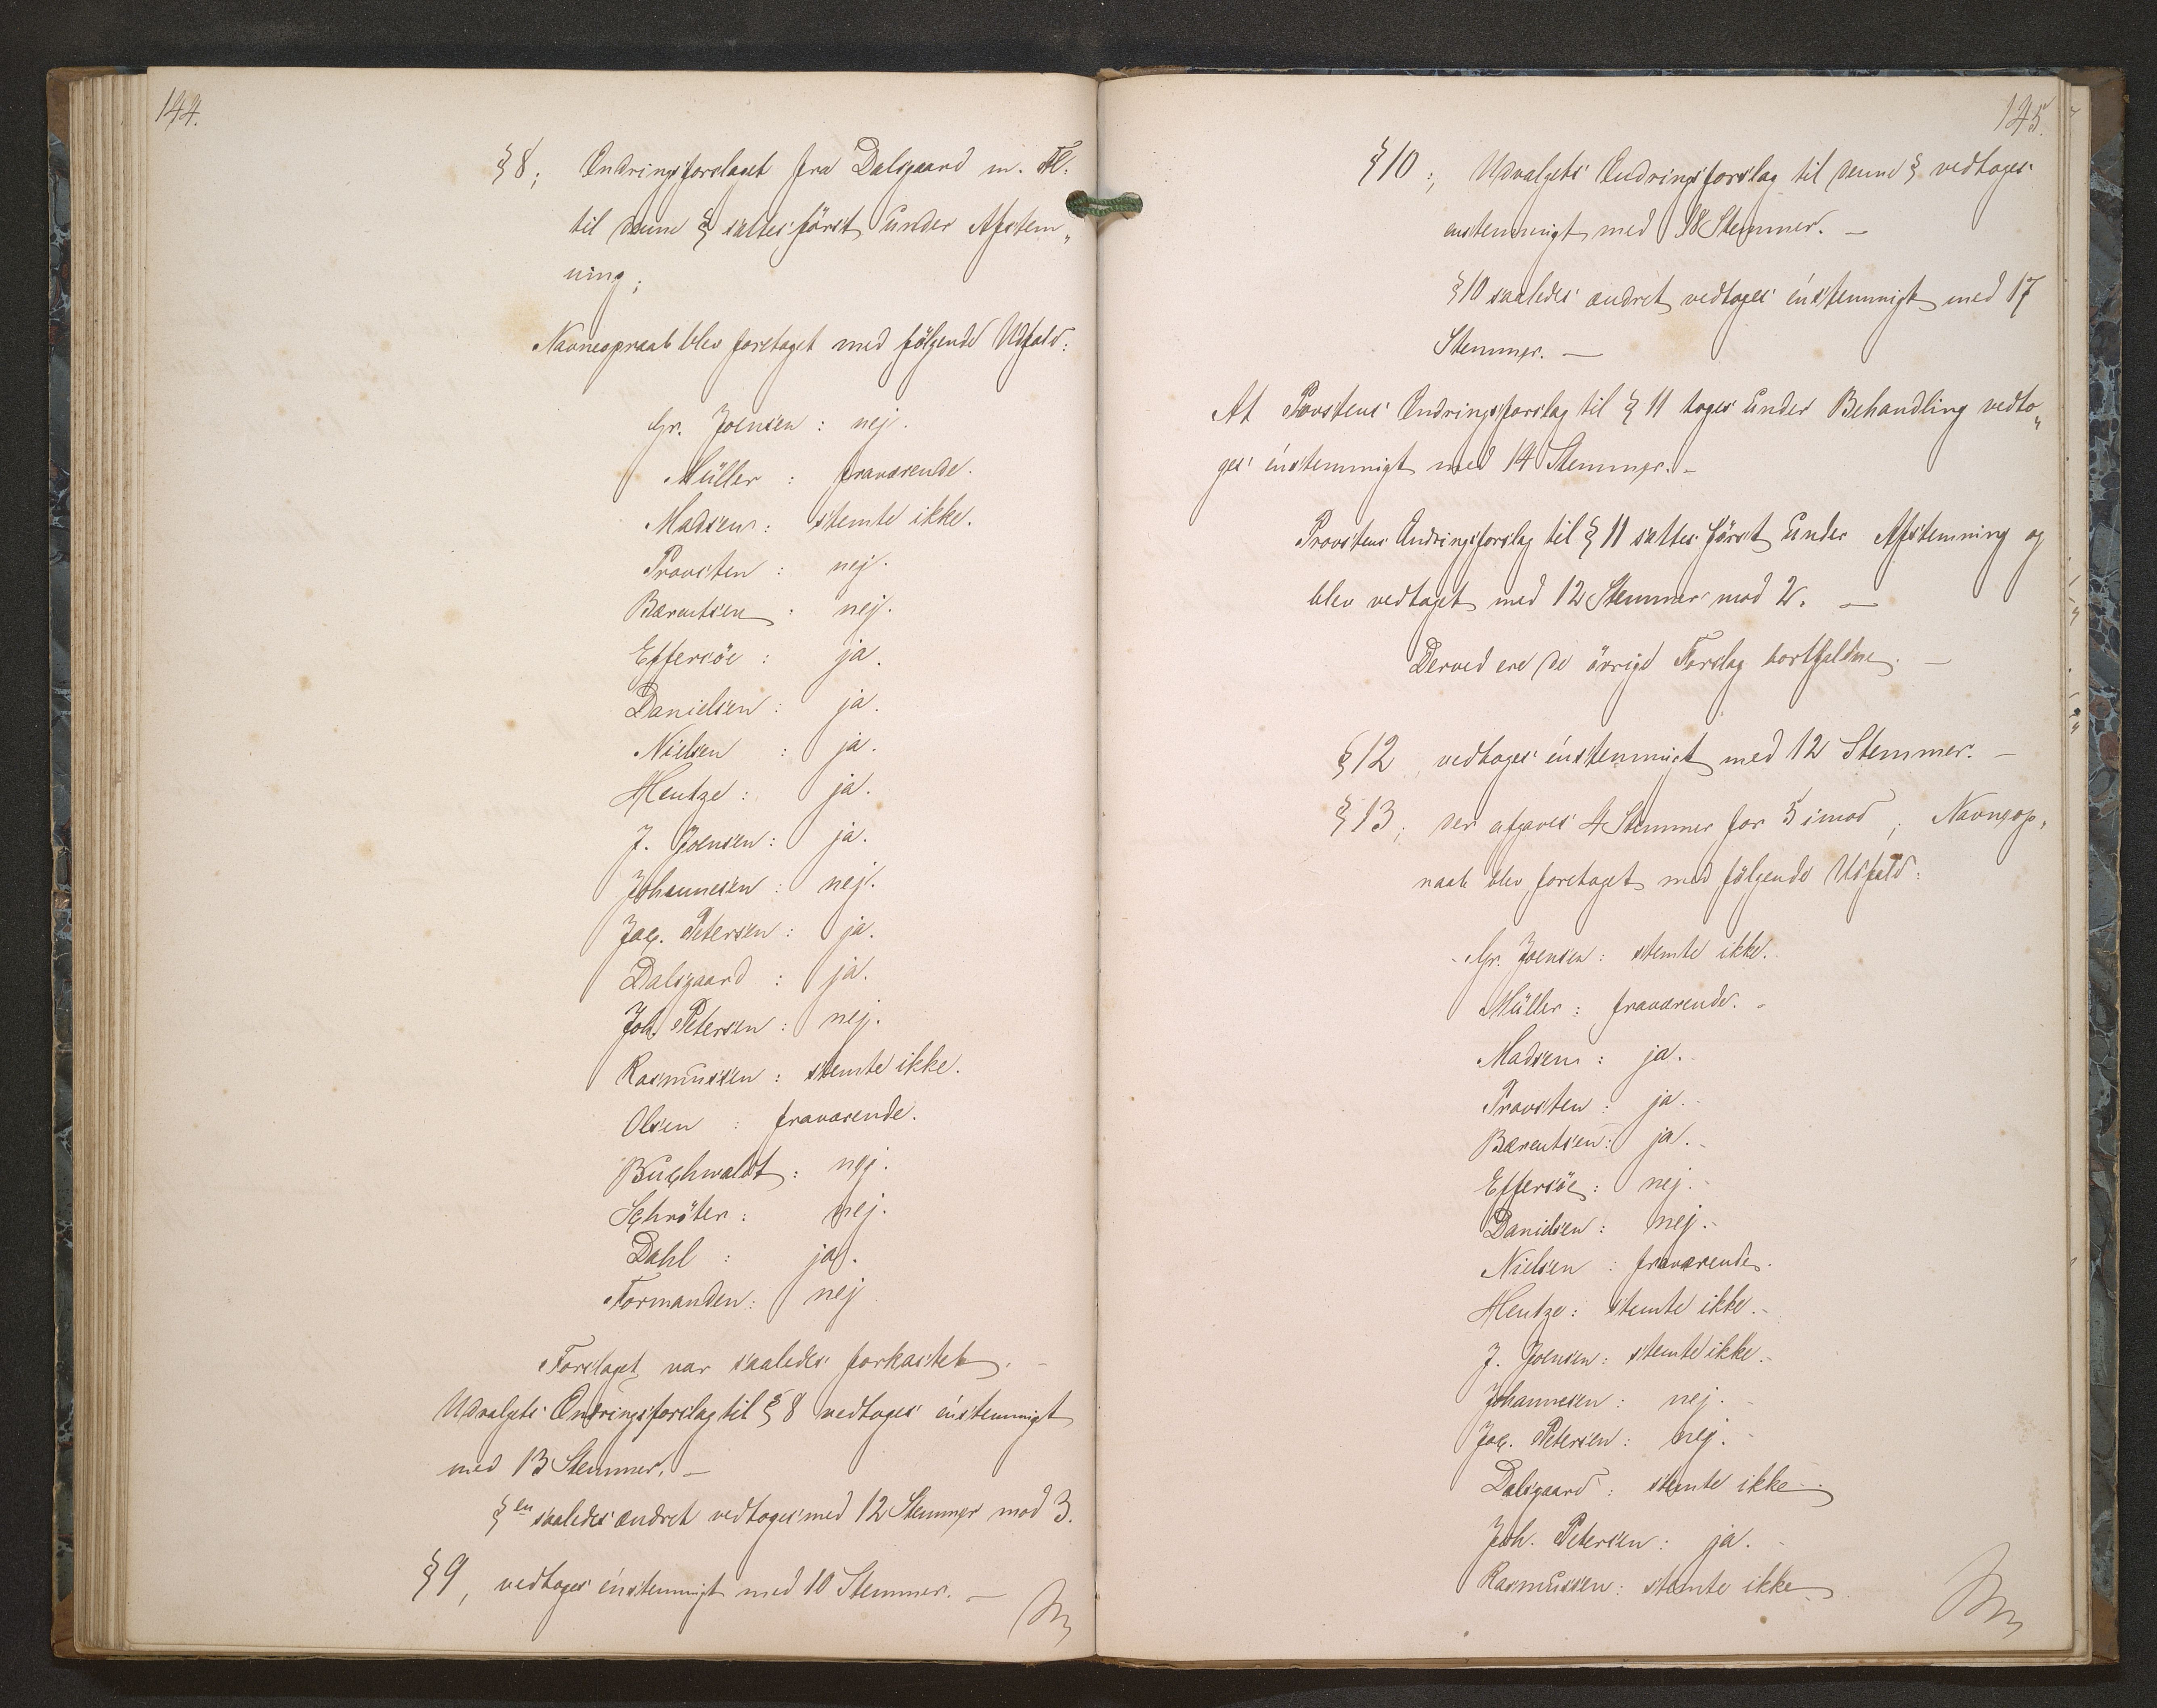 144.
§ 8; Ændringsforslaget fra Dalsgaard m. Fl.
til denne § sattes først under Afstem„
ning;
Navneopraab blev foretaget med følgende Udfald:
Gr. Joensen: nej.
Müller: fraværende.
Madsen: stemte ikke.
Provsten: nej.
Bærentsen: nej.
Effersöe: ja.
Danielsen: ja.
Nielsen: ja.
Hentze: ja.
J. Joensen: ja.
Johannesen: nej.
Jac. Petersen: ja.
Dalsgaard: ja.
Joh. Petersen: nej.
Rasmussen: stemte ikke.
Olsen: fraværende.
Buchwaldt: nej.
Schröter: nej.
Dahl: ja.
Formanden: nej
Forslaget var saaledes forkastet. —
Udvalgets Ændringsforslag til § 8 vedtoges énstemmigt
med 13 Stemmer. —
§en saaledes ændret vedtoges med 12 Stemmer mod 3.
§ 9, vedtoges énstemmigt med 10 Stemmer. —
145.
§ 10:, Udvalgets Ændringsforslag til denne § vedtoges
enstemmigt med 18 Stemmer. —
§ 10 saaledes ændret vedtoges énstemmigt med 17
Stemmer. —
At Provstens Ændringsforslag til § 11 toges under Behandling vedto„
ges énstemmigt med 14 Stemmer. —
Provstens Ændringsforslag til § 11 sattes først under Afstemning og
blev vedtaget med 12 Stemmer mod 2. —
Derved ere de övrige Forslag bortfaldne. —
§ 12, vedtoges énstemmigt med 12 Stemmer. —
§ 13; der afgaves 4 Stemmer for 5 imod; Navneop„
raab blev foretaget med følgende Udfald:
Gr. Joensen: stemte ikke.
Müller: fraværende. -
Madsen: ja.
Provsten: ja. -
Bærentsen: ja. -
Effersöe: nej. -
Danielsen: nej. -
Nielsen: fraværende.
Hentze: stemte ikke. -
J. Joensen: stemte ikke. -
Johannesen: nej. -
Jac. Petersen: nej. -
Dalsgaard: stemte ikke -
Joh. Petersen: ja. -
Rasmussen: stemte ikke